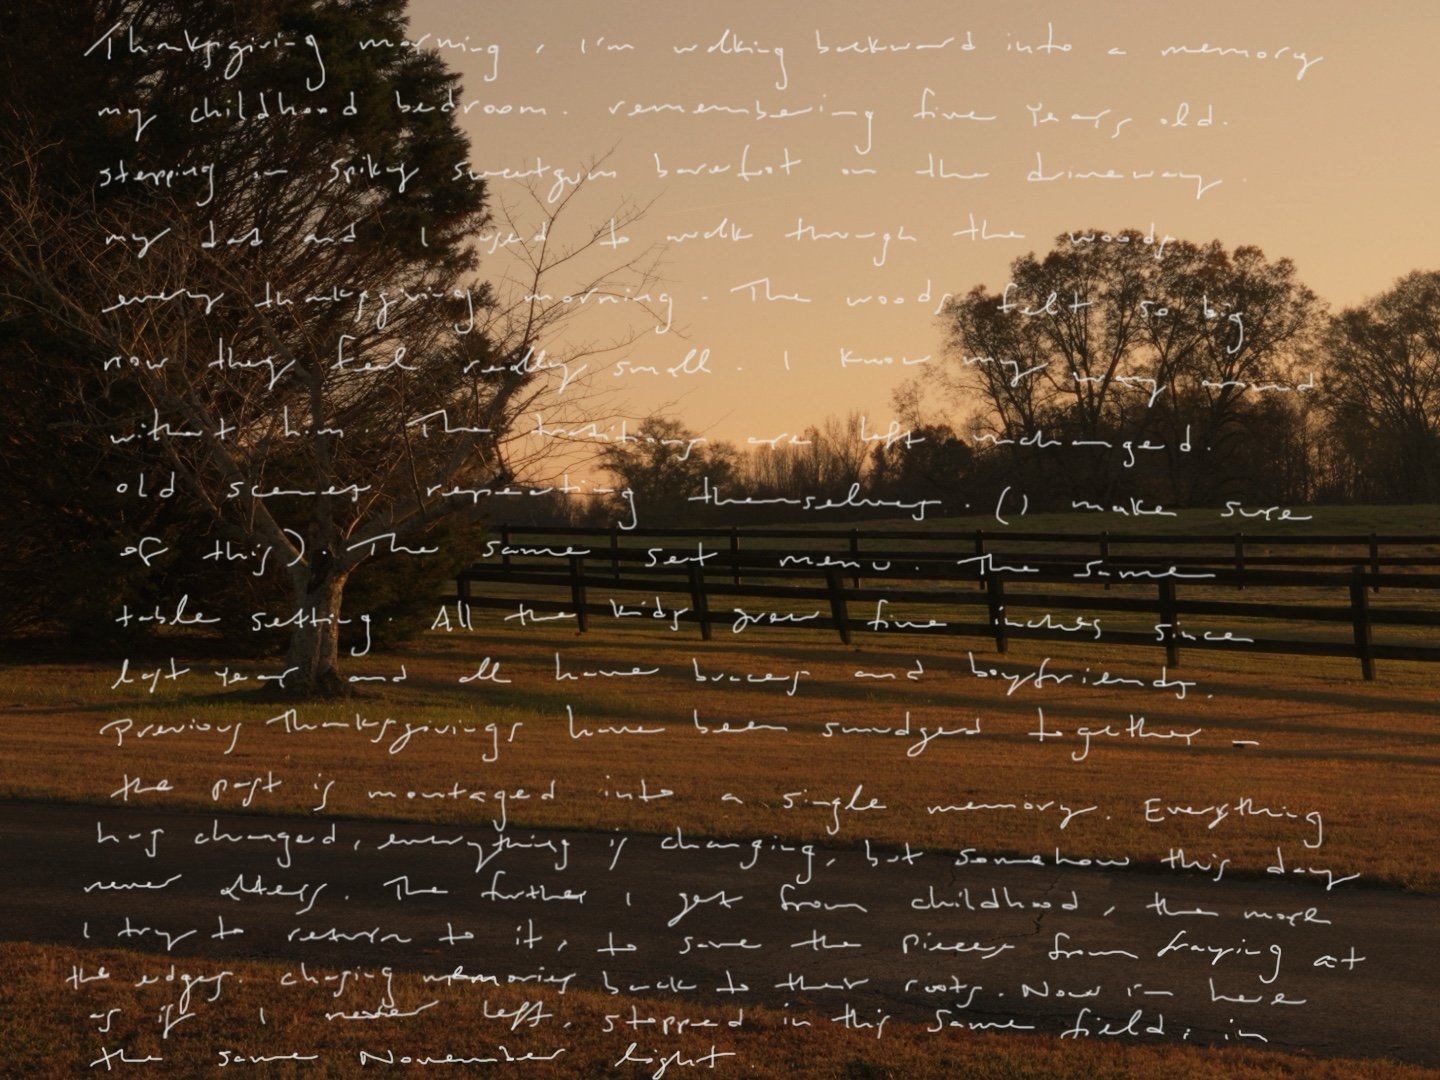 Thanksgiving morning, I'm walking backward into a memory
my childhood bedroom. remembering five years old.
stepping on spiky sweetgum barefoot on the driveway.
my dad and I used to walk through the woods
every thanksgiving morning. The woods felt so big
now they feel really small. I know my way around
without him. The traditions are left unchanged.
old scenes repeating themselves. (I make sure
of this). The same set menu. The same
table setting. All the kids grew five inches since
last year and all have braces and boyfriends.
Previous Thanksgivings have been smudged together –
the past is montaged into a single memory. Everything
has changed, everything is changing, but somehow this day
never alters. The further I get from childhood, the more
I try to return to it, to save the pieces from fraying at
the edges. chasing memories back to their roots. Now I'm here
as if I never left, stopped in this same field, in
the same November light